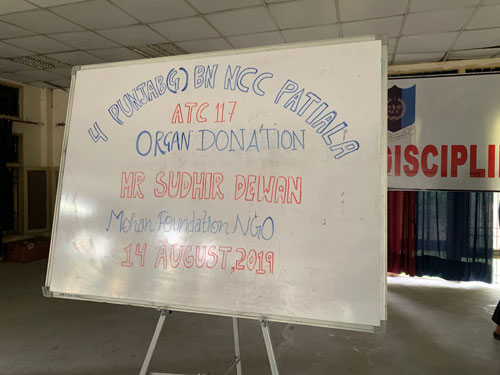 4 PUNJAB(G) BN NCC PATIALA
ATC 117
ORGAN DONATION
MR SUDHIR DEWAN
Mohan Foundation NGO
14 AUGUST, 2019
DISCIPLI